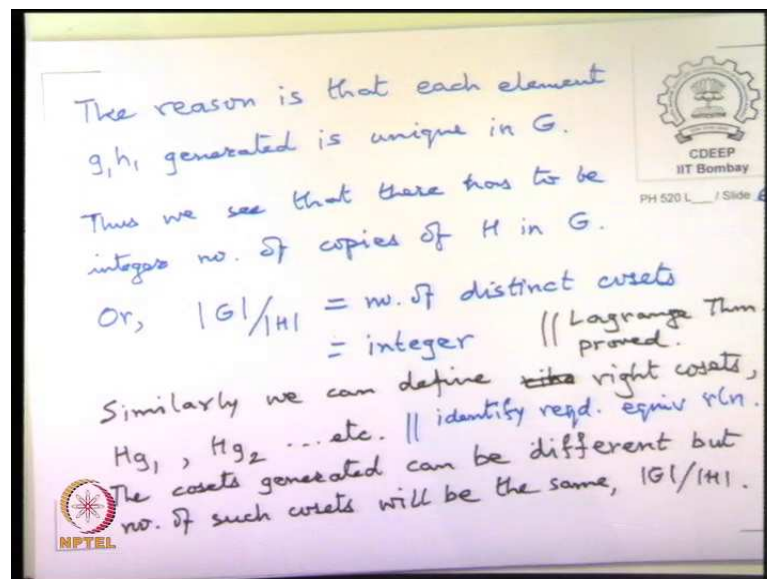 The reason is that each element
g₁h₁ generated is unique in G.
Thus we see that there has to be
integer no. of copies of H in G.
Or, |G|/|H| = no. of distinct cosets
= integer || Lagrange Thm
proved.
Similarly we can define right cosets,
Hg₁, Hg₂ ...etc. || identify reqd. equiv rln.
The cosets generated can be different but
no. of such cosets will be the same, |G|/|H|.
CDEEP
IIT Bombay
PH 520 L___ / Slide
NPTEL